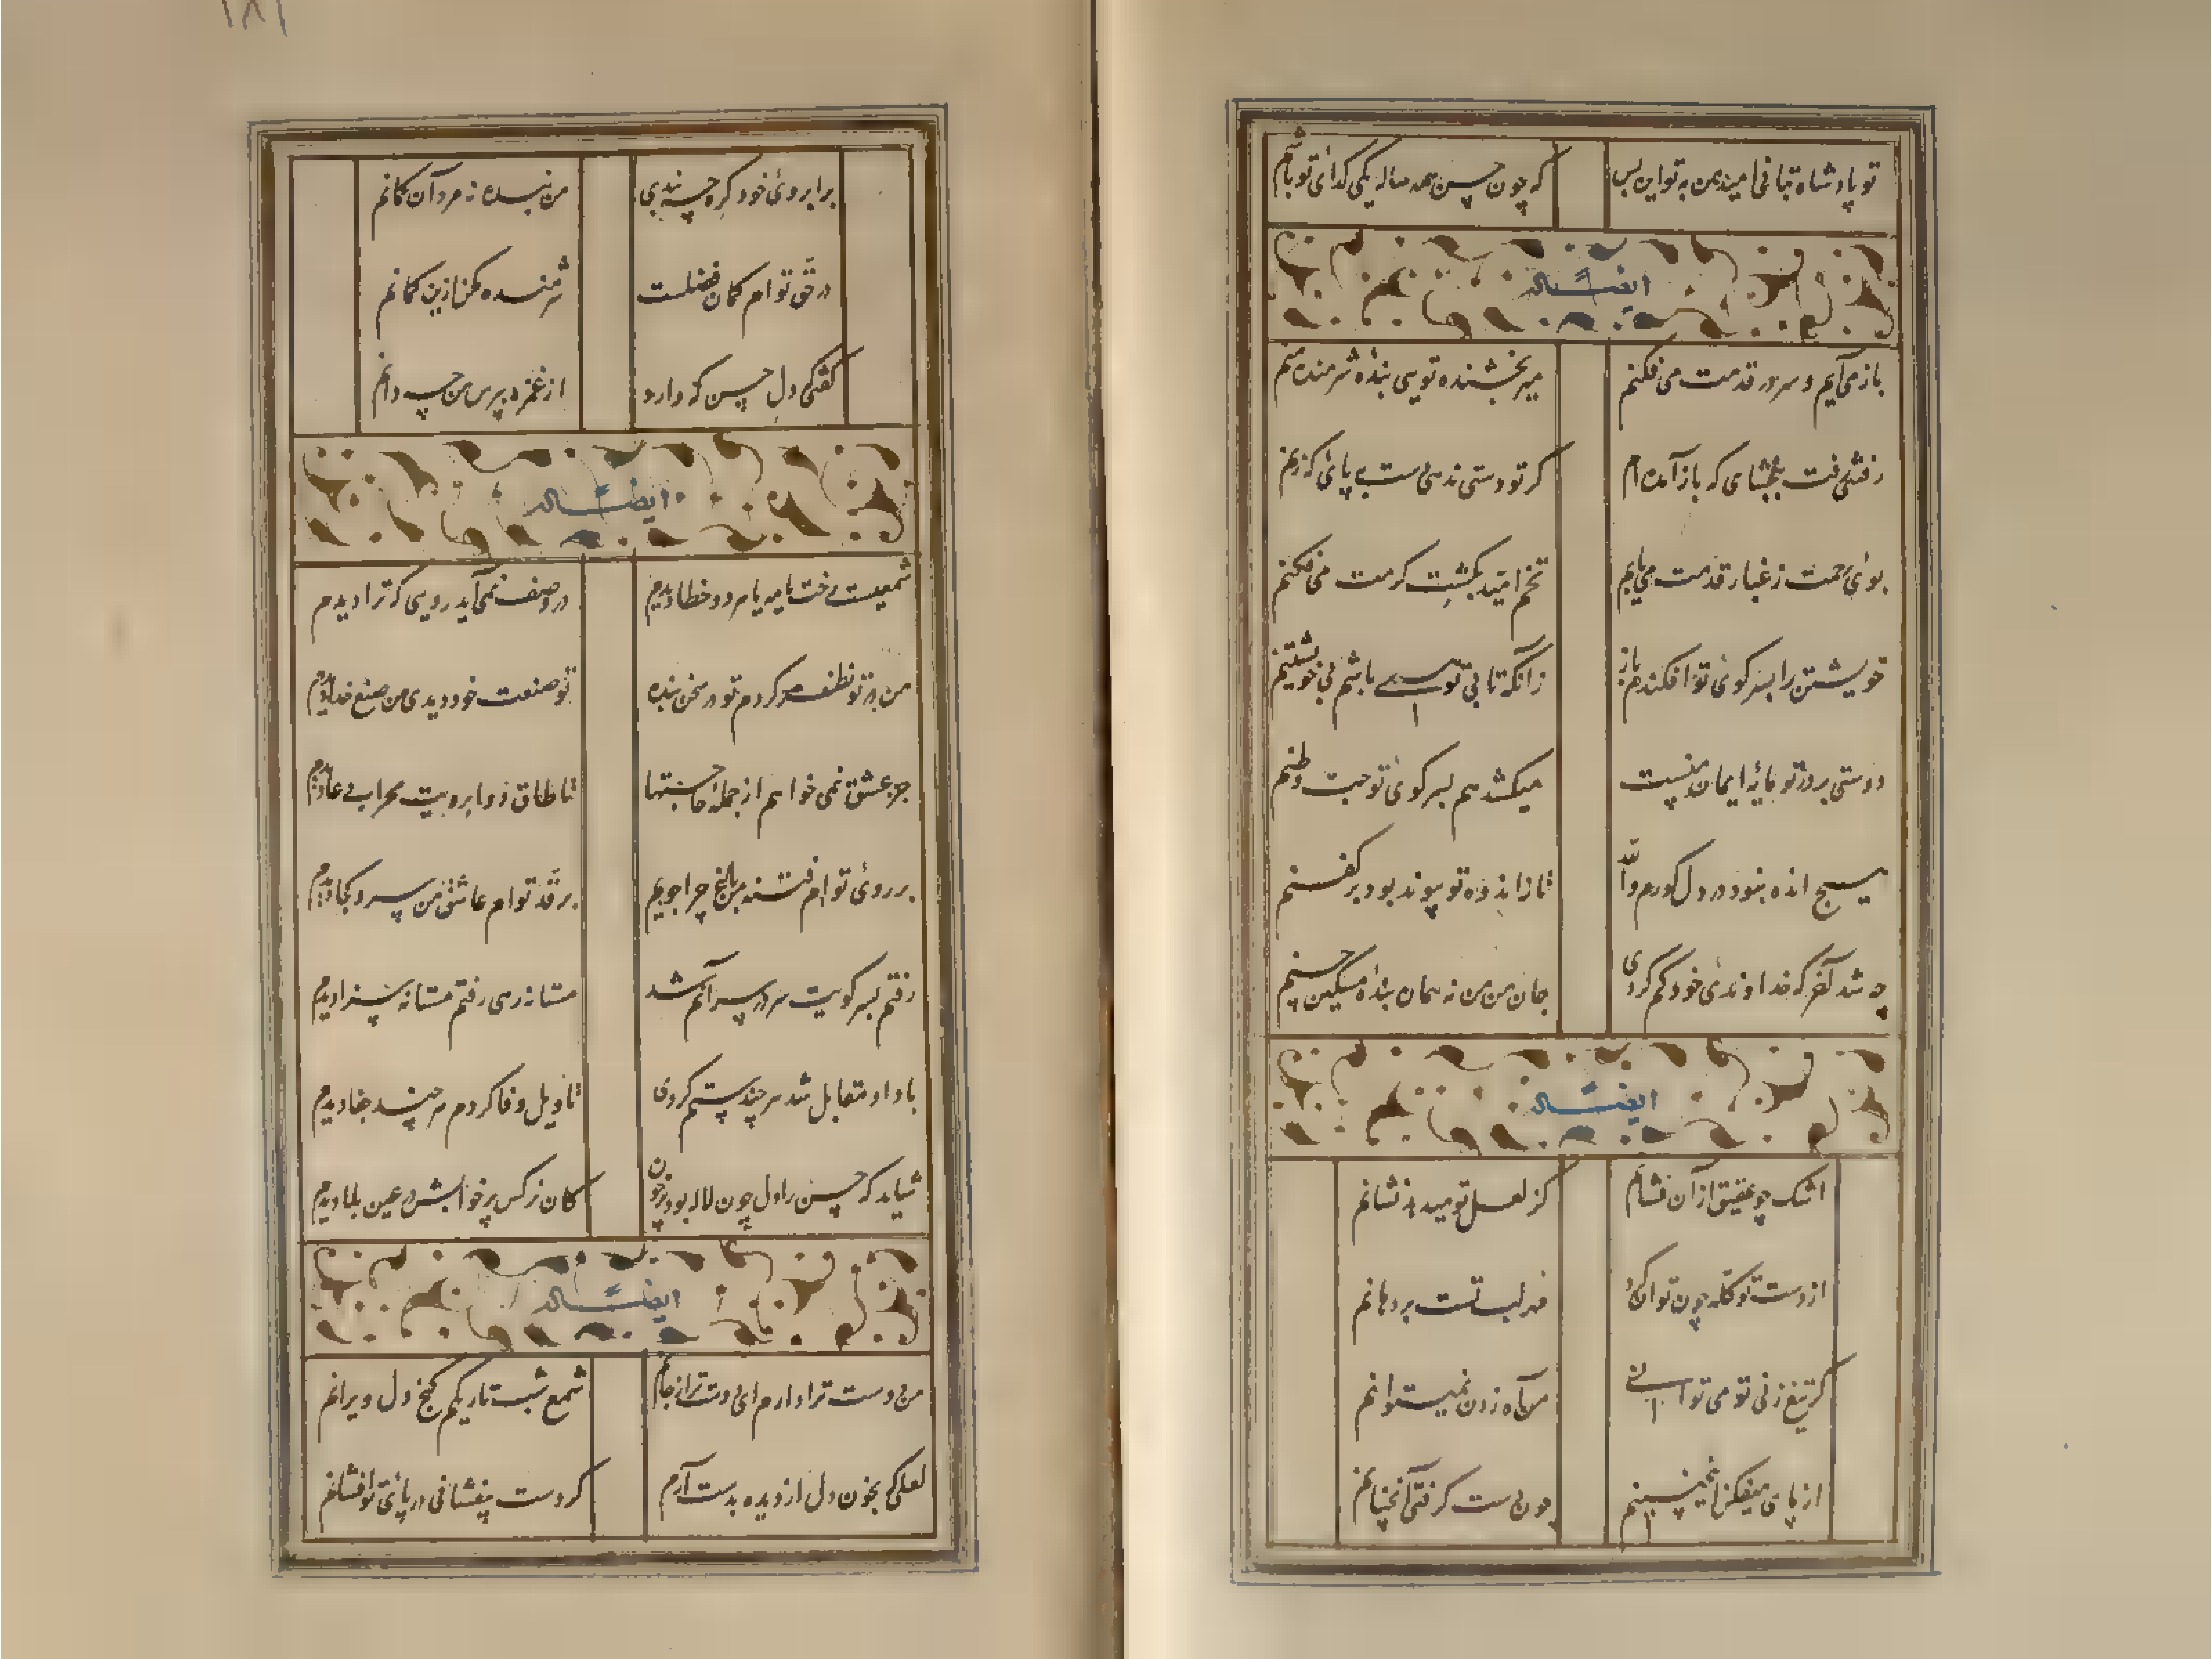 تو پادشاه بتانی امید من به تو این بس
که چون حسن همه ساله یکی گدای تو باشم
ایضاً له
باز می آیم و سر در قدمت می فکنم
میر بخشنده تویی بنده شرمنده منم
رفتنی رفت ببخشای که باز آمده ام
گر تو دستی ندهی دست به پای که زنم
بوی رحمت ز غبار قدمت می یابم
تخم امید بکشت کرمت می فکنم
خویشتن را بسر کوی تو افکندم باز
زانکه تا بی تو همی باشم بی خویشتنم
دوستی بر در تو مایه ایمان منست
میکشد هم بسر کوی تو حب وطنم
هیچ اندوه نبود در دل گورم والله
تا ز اندوه تو پیوند بود بر کفنم
چه شد آخر که خداوندی خود گم کردی
جان من من نه همان بنده مسکین حسنم
ایضاً له
اشک چو عقیق از آن فشانم
کز لعل تو میدهد نشانم
از دست تو گله چون توان کرد
مهر لب تست بر دهانم
گر تیغ زنی تو می توانی
من آه زدن نمیتوانم
از پای میفکن اینچنینم
چون دست گرفتی آنچنانم
۱۸۱
بر ابروی خود گره چه بندی
من بنده نه مرد آن کمانم
در حق توام گمان فضلست
شرمنده مکن ازین گمانم
گفتی دل حسن که دارد
از غمزه بپرس من چه دانم
ایضاً له
در وصف نمی آید رویی که ترا دیدم
من در تو نظر کردم تو در سخن بنده
تو صنعت خود دیدی من صنع خدا دیدم
جز عشق نمی خواهم از جمله حاجتها
تا طاق دو ابرویت محراب دعا دیدم
بر روی توام فتنه من باغ چرا جویم
بر قد توام عاشق من سرو کجا دیدم
رفتم بسر کویت سر در سر آنم شد
مستانه رهی رفتم مستانه سزا دیدم
با داد مقابل شد هر چند ستم کردی
تاویل وفا کردم هر چند جفا دیدم
شاید که حسن را دل چون لاله بود پرخون
کان نرگس پر خوابش در عین بلا دیدم
ایضاً له
من دوست ترا دارم ای دوست تر از جانم
شمع شب تاریکم گنج دل ویرانم
لعلی که بخون دل از دیده بدست آرم
گر دست بیفشانی در پای تو افشانم